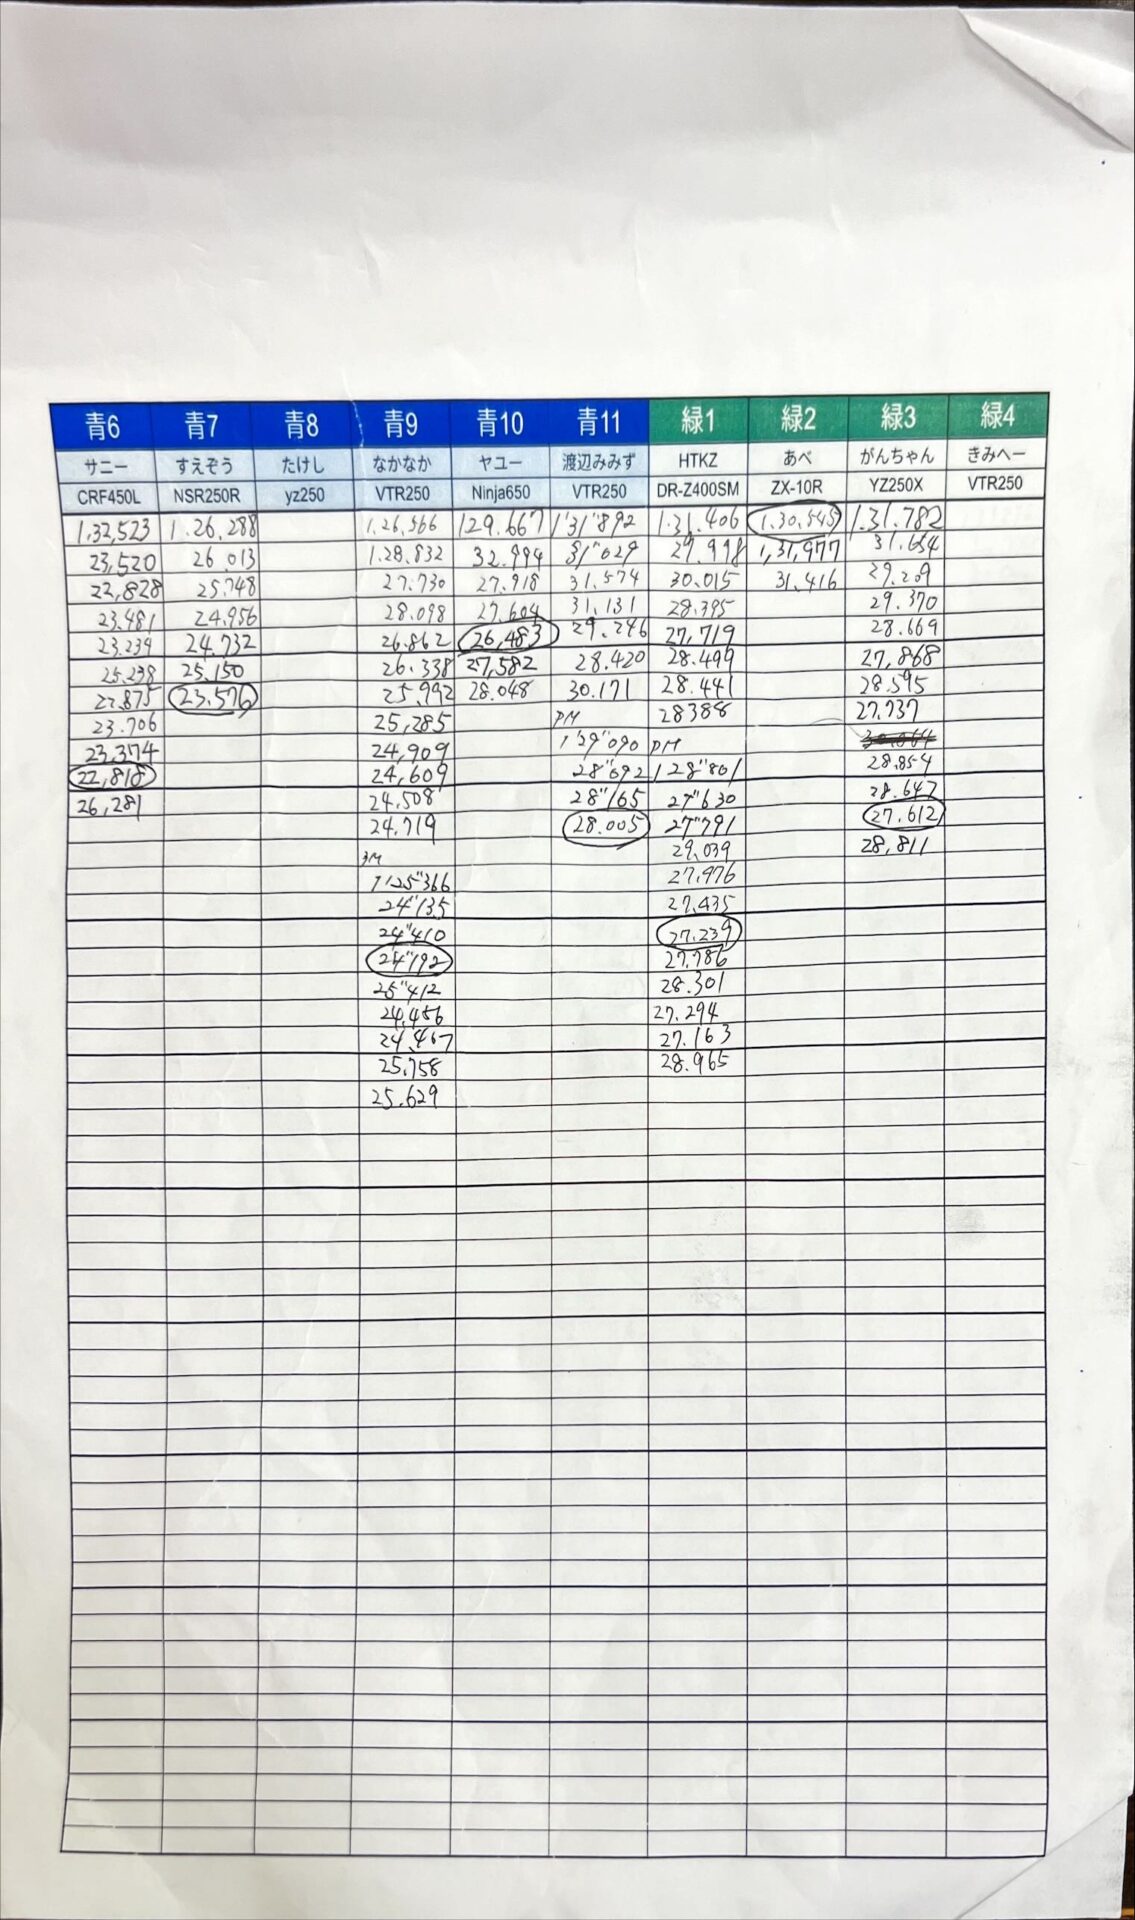 青6 青7 青8 青9 青10 青11 緑1 緑2 緑3 緑4
サニー すえぞう たけし なかなか ヤユー 渡辺みみず HTKZ あべ がんちゃん きみへー
CRF450L NSR250R yz250 VTR250 Ninja650 VTR250 DR-Z400SM ZX-10R YZ250X VTR250
1,32,523 1.26.288 1.26,566 129.667 1'31"892 1.31.406 1.30,545 1.31.782
23,520 26.013 1.28.832 32.994 31"029 29.998 1,31,977 31.654
22,828 25.748 27.730 27.918 31.574 30.015 31.416 29.209
23.481 24.956 28.098 27.604 31.131 28.395 29.370
23.239 24.732 26.862 26,483 29.246 27,719 28.669
25.238 25.150 26.338 27,582 28.420 28.499 27,868
22.875 23.576 25,992 28.048 30.171 28.441 28.595
23.706 25,285 PM 28388 27.737
23,374 24,909 1'29"090 PM
22,818 24,609 28"692 1'28"801 28.854
26,281 24.508 28"165 27"630 28.647
24.719 28.005 27"791 27.612
29,039 28,811
1'25"366 27.976
24"135 27.435
24"410 27.239
24"192 27.786
25"412 28.301
24,456 27.294
24,467 27.163
25.758 28.965
25.629